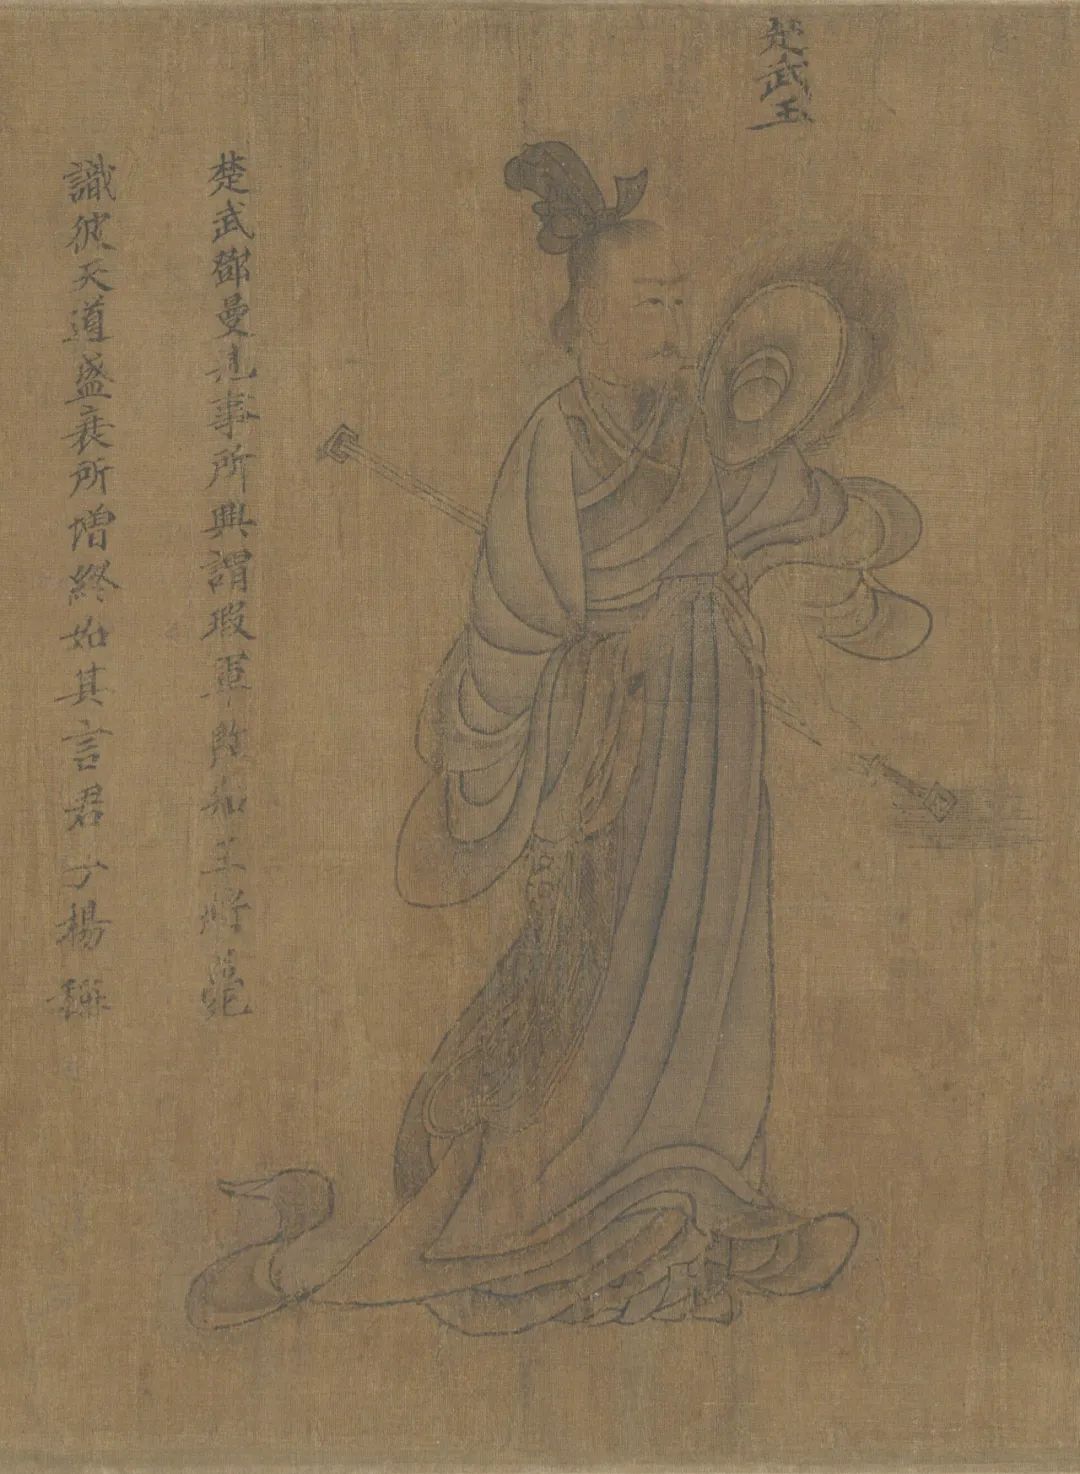 楚武王
楚武鄧曼見事所興謂瑕軍敗知王將薨
識彼天道盛衰所增終如其言君子楊稱